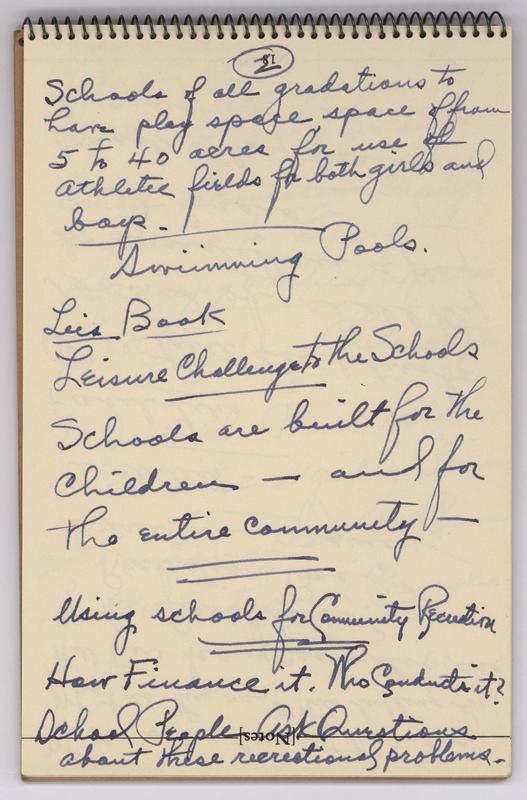 18
Schools of all gradations to
have play space, space of from
5 to 40 acres for use of
athletic fields for both girls and
boys -
Swimming Pools.
Leis Book
Leisure Challenge to the Schools
Schools are built for the
Children — and for
the entire community —
Using schools for Community Recreation
How Finance it. Who Conducts it?
School People Ask Questions
[Notes]
about these recreational problems.